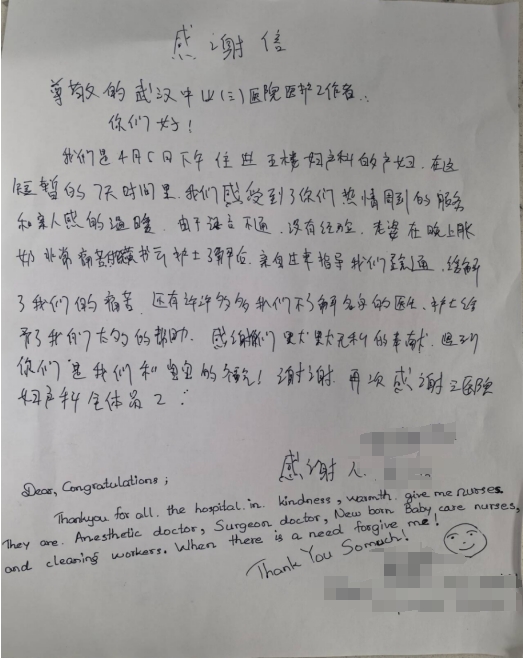 感谢信
尊敬的武汉市(三)医院医护工作者:
你们好!
我们是4月5日下午住进五楼妇产科的产妇.在这
短暂的7天时间里.我们感受到了你们热情周到的服务
和亲人感的温暖.由于语言不通.没有经验.老婆在晚上胀
奶非常痛苦护士了解后.亲自过来指导我们疏通.缓解
了我们的痛苦.还有许许多多我们不了解名字的医生、护士给
予了我们太多的帮助.感谢你们默默无私的奉献.遇到
你们是我们和宝宝的福气!谢谢.再次感谢三医院
妇产科全体员工:
感谢人.
Dear, Congratulations;
Thankyou for all. the hospital. in. kindness, warmth. give me nurses.
They are. Anesthetic doctor, Surgeon doctor, New born Baby care nurses,
and cleaning workers. When there is a need forgive me!
Thank You Somuch!